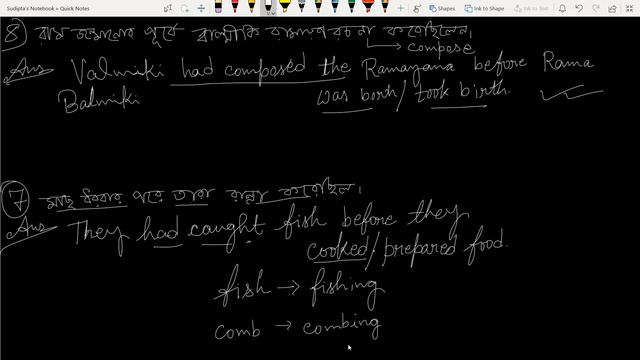 Sudipta's Notebook » Quick Notes
Ink to Shape Ink to Text Ink to Math
৪) রাম জন্মানোর পূর্বে বাল্মীকি রামায়ণ রচনা করেছিলেন।
→ compose
Ans Valmiki had composed the Ramayana before Rama
Balmiki was born/took birth.
৭) মাছ ধরবার পরে তারা রান্না করেছিল।
Ans They had caught fish before they
cooked/prepared food.
fish → fishing
comb → combing